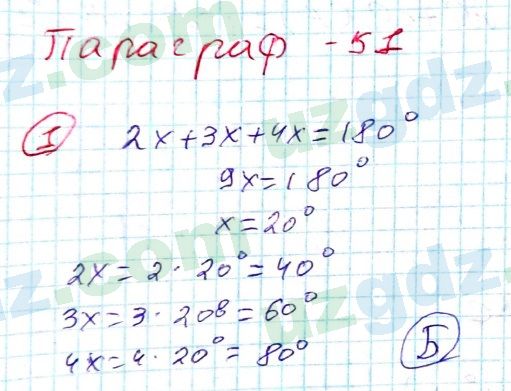 Параграф - 51
1 2x+3x+4x=180°
9x=180°
x=20°
2x=2·20°=40°
3x=3·20°=60°
4x=4·20°=80°
Б
uzgdz.com